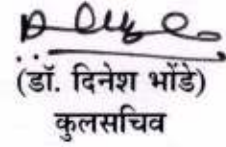 (डॉ. दिनेश भोंडे)
कुलसचिव